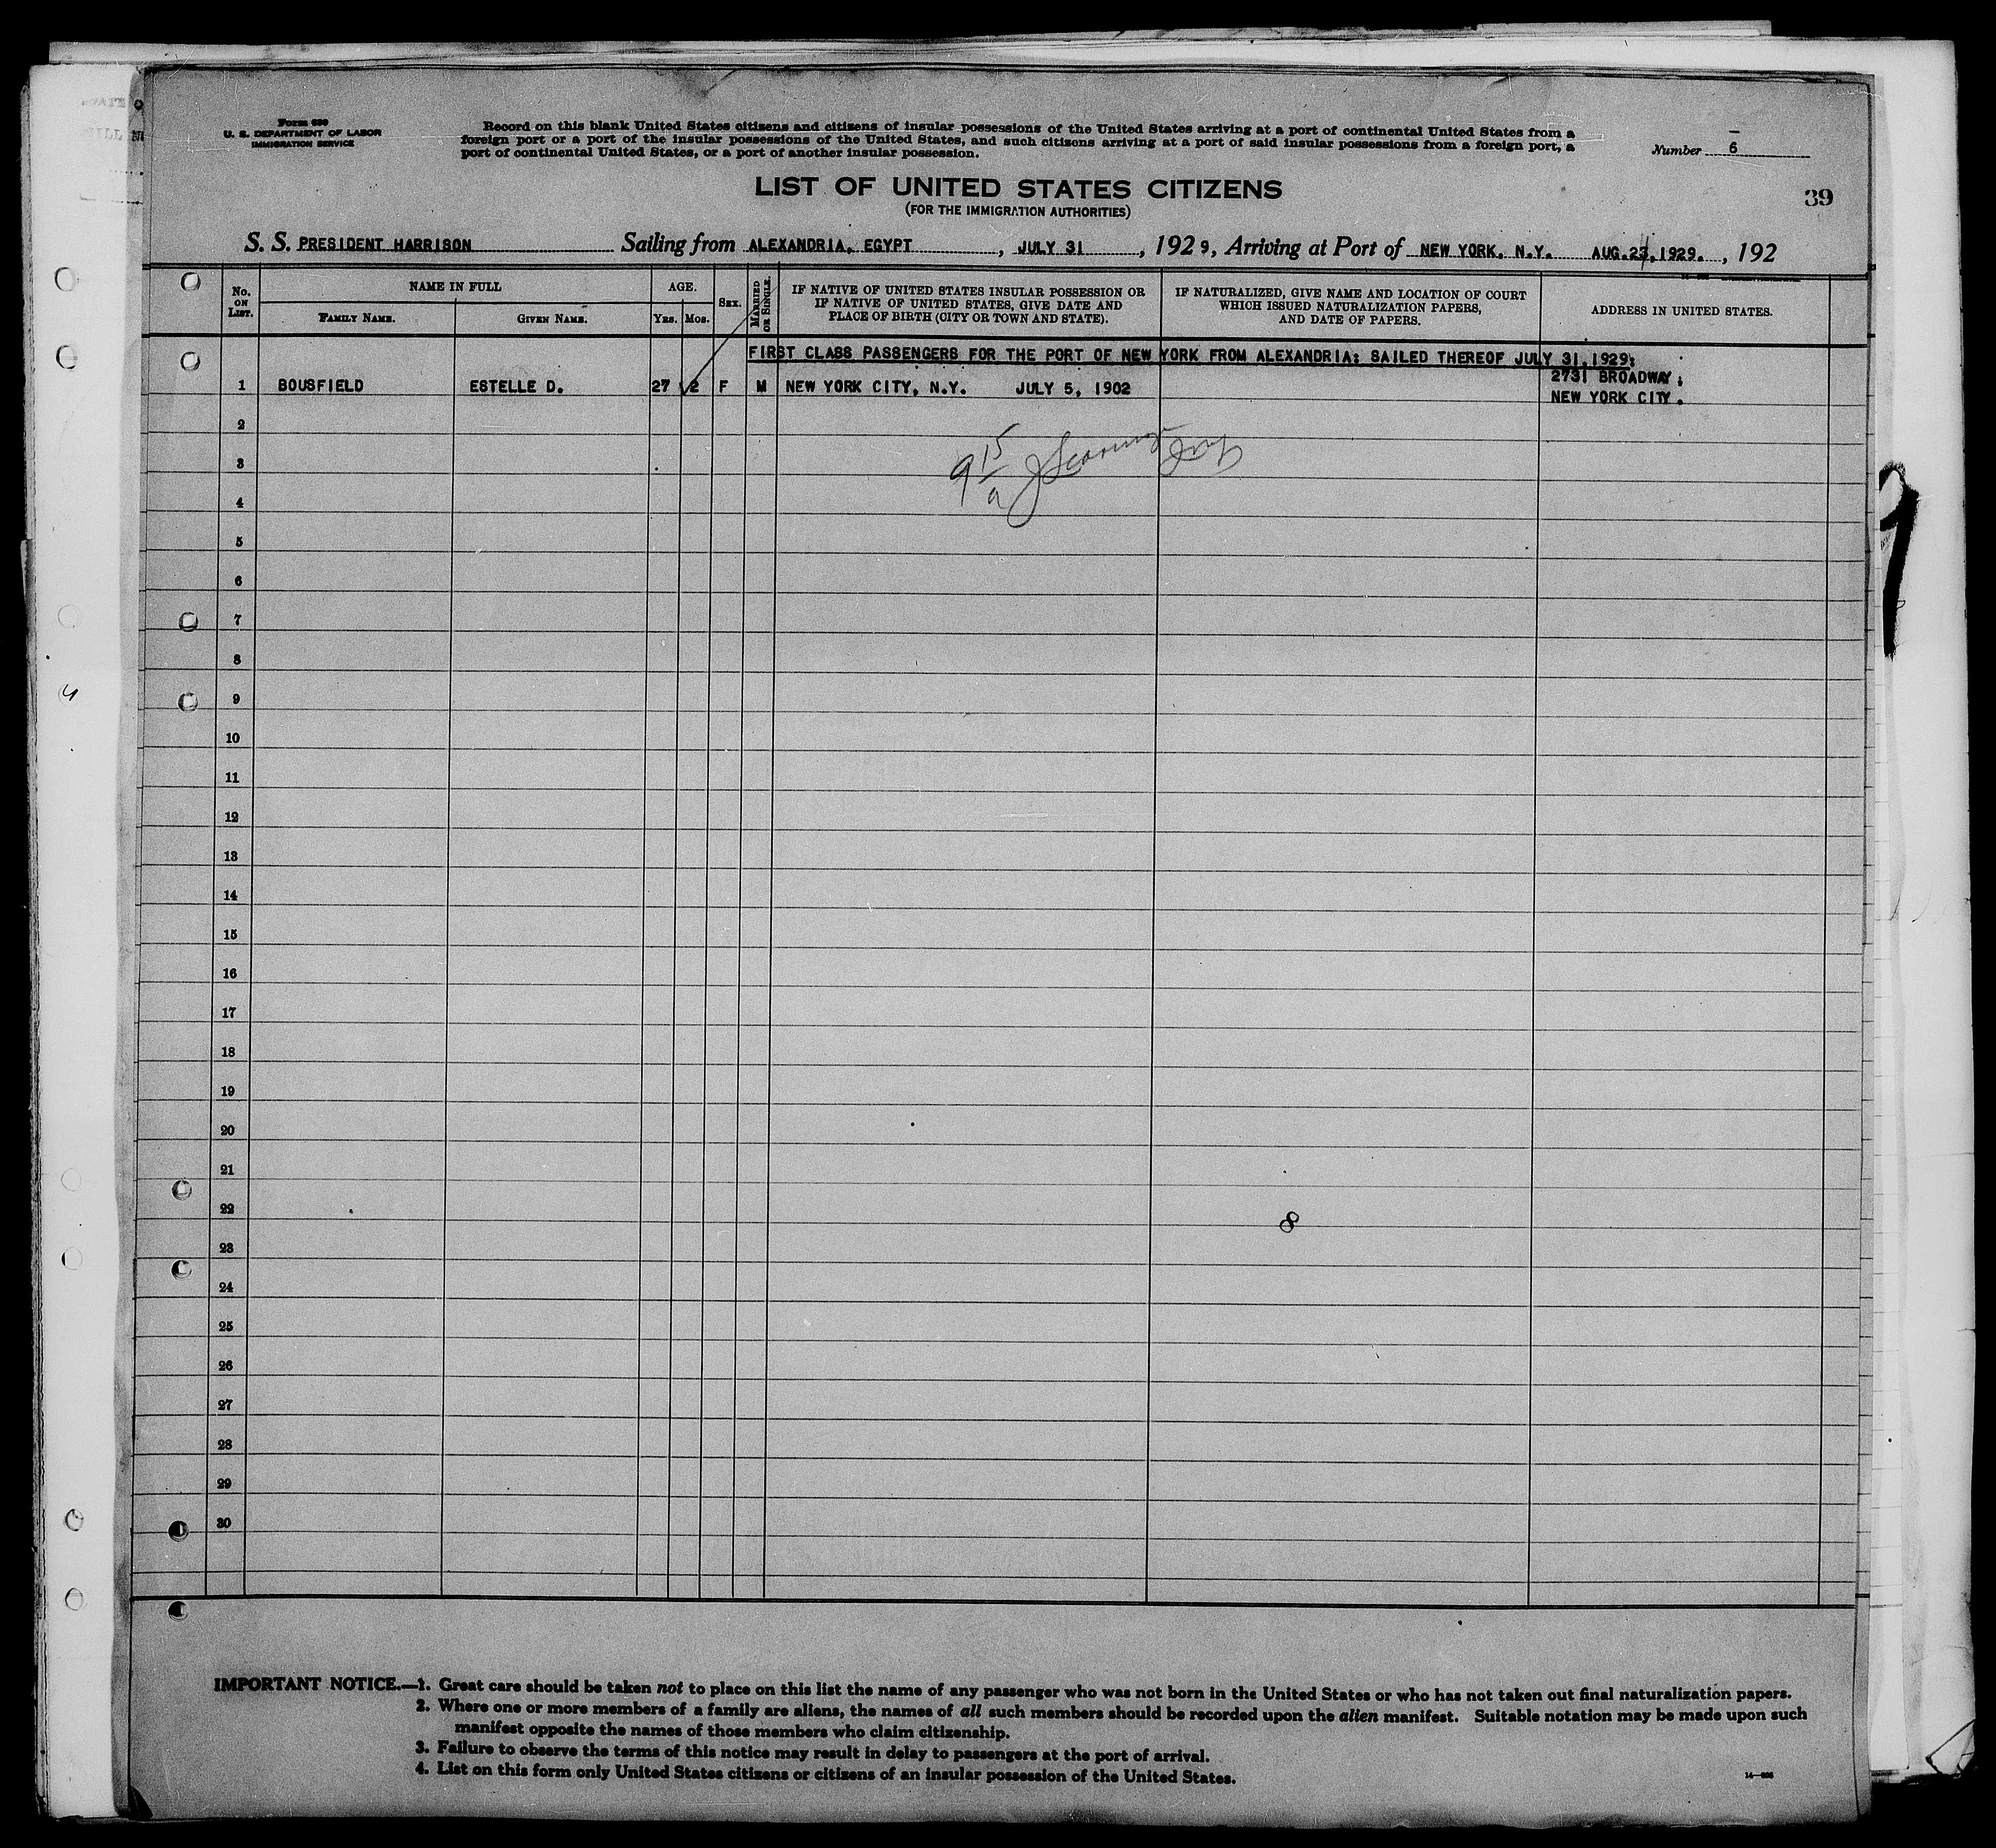 Form 630
U. S. DEPARTMENT OF LABOR
IMMIGRATION SERVICE
Record on this blank United States citizens and citizens of insular possessions of the United States arriving at a port of continental United States from a
foreign port or a port of the insular possessions of the United States, and such citizens arriving at a port of said insular possessions from a foreign port, a
port of continental United States, or a port of another insular possession.
Number 6
LIST OF UNITED STATES CITIZENS
39
(FOR THE IMMIGRATION AUTHORITIES)
S. S. PRESIDENT HARRISON Sailing from ALEXANDRIA, EGYPT, JULY 31, 1929, Arriving at Port of NEW YORK, N.Y. AUG.23, 1929., 192
No. ON LIST.
NAME IN FULL
FAMILY NAME.
GIVEN NAME.
AGE.
YRS. MOS.
SEX.
MARRIED OR SINGLE.
IF NATIVE OF UNITED STATES INSULAR POSSESSION OR
IF NATIVE OF UNITED STATES, GIVE DATE AND
PLACE OF BIRTH (CITY OR TOWN AND STATE).
IF NATURALIZED, GIVE NAME AND LOCATION OF COURT
WHICH ISSUED NATURALIZATION PAPERS,
AND DATE OF PAPERS.
ADDRESS IN UNITED STATES.
FIRST CLASS PASSENGERS FOR THE PORT OF NEW YORK FROM ALEXANDRIA; SAILED THEREOF JULY 31, 1929:
1 BOUSFIELD ESTELLE D. 27 2 F M NEW YORK CITY, N.Y. JULY 5, 1902 2731 BROADWAY;
NEW YORK CITY.
2
9 15/a
3
4
5
6
7
8
9
10
11
12
13
14
15
16
17
18
19
20
21
22
8
23
24
25
26
27
28
29
30
IMPORTANT NOTICE.—1. Great care should be taken not to place on this list the name of any passenger who was not born in the United States or who has not taken out final naturalization papers.
2. Where one or more members of a family are aliens, the names of all such members should be recorded upon the alien manifest. Suitable notation may be made upon such
manifest opposite the names of those members who claim citizenship.
3. Failure to observe the terms of this notice may result in delay to passengers at the port of arrival.
4. List on this form only United States citizens or citizens of an insular possession of the United States.